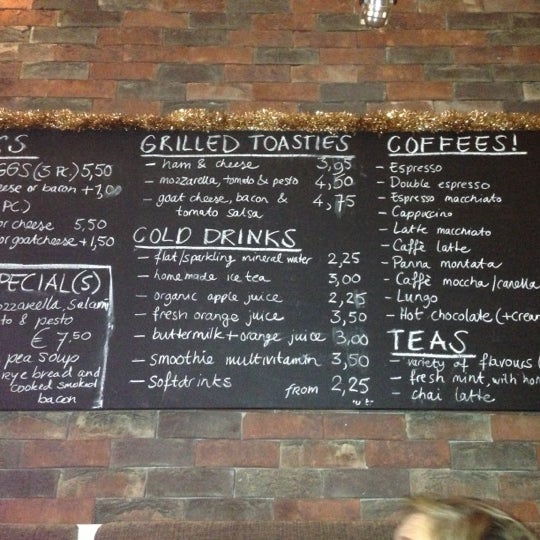 GGS (3 PC.) 5,50
cheese or bacon + 1,00
PC)
or cheese 5,50
or goatcheese + 1,50
SPECIAL(S)
mozzarella, Salami
& pesto
€ 7,50
pea soup
rye bread and
cooked smoked
bacon
GRILLED TOASTIES
- ham & cheese 3,95
- mozzarella, tomato & pesto 4,50
- goat cheese, bacon & 4,75
tomato salsa
COLD DRINKS
- flat/sparkling mineral water 2,25
- home made ice tea 3,00
- organic apple juice 2,25
- fresh orange juice 3,50
- buttermilk + orange juice 3,00
- smoothie multivitamin 3,50
- Softdrinks from 2,25
COFFEES!
- Espresso
- Double espresso
- Espresso macchiato
- Cappuccino
- Latte macchiato
- Caffè latte
- Panna montata
- Caffè moccha/canella
- Lungo
- Hot chocolate (+cream
TEAS
- variety of flavours (
- fresh mint, with hon
- chai latte